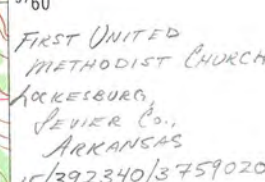 60
FIRST UNITED
METHODIST CHURCH
LOCKESBURG,
SEVIER CO.,
ARKANSAS
15/392340/3759020